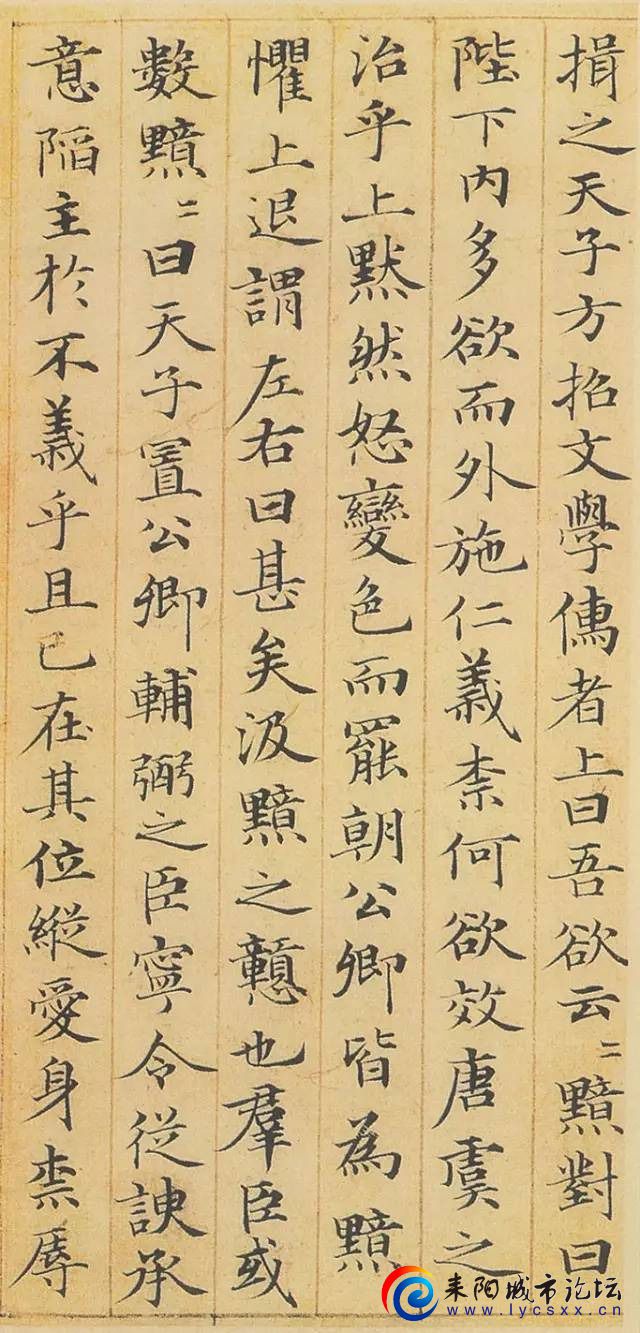 揖之天子方招文學儒者上曰吾欲云〻黯對曰
陛下內多欲而外施仁義柰何欲效唐虞之
治乎上默然怒變色而罷朝公卿皆為黯
懼上退謂左右曰甚矣汲黯之戇也羣臣或
數黯〻曰天子置公卿輔弼之臣寧令從諛承
意陷主於不義乎且已在其位縱愛身柰辱
耒阳城市论坛
www.lycsxx.cn